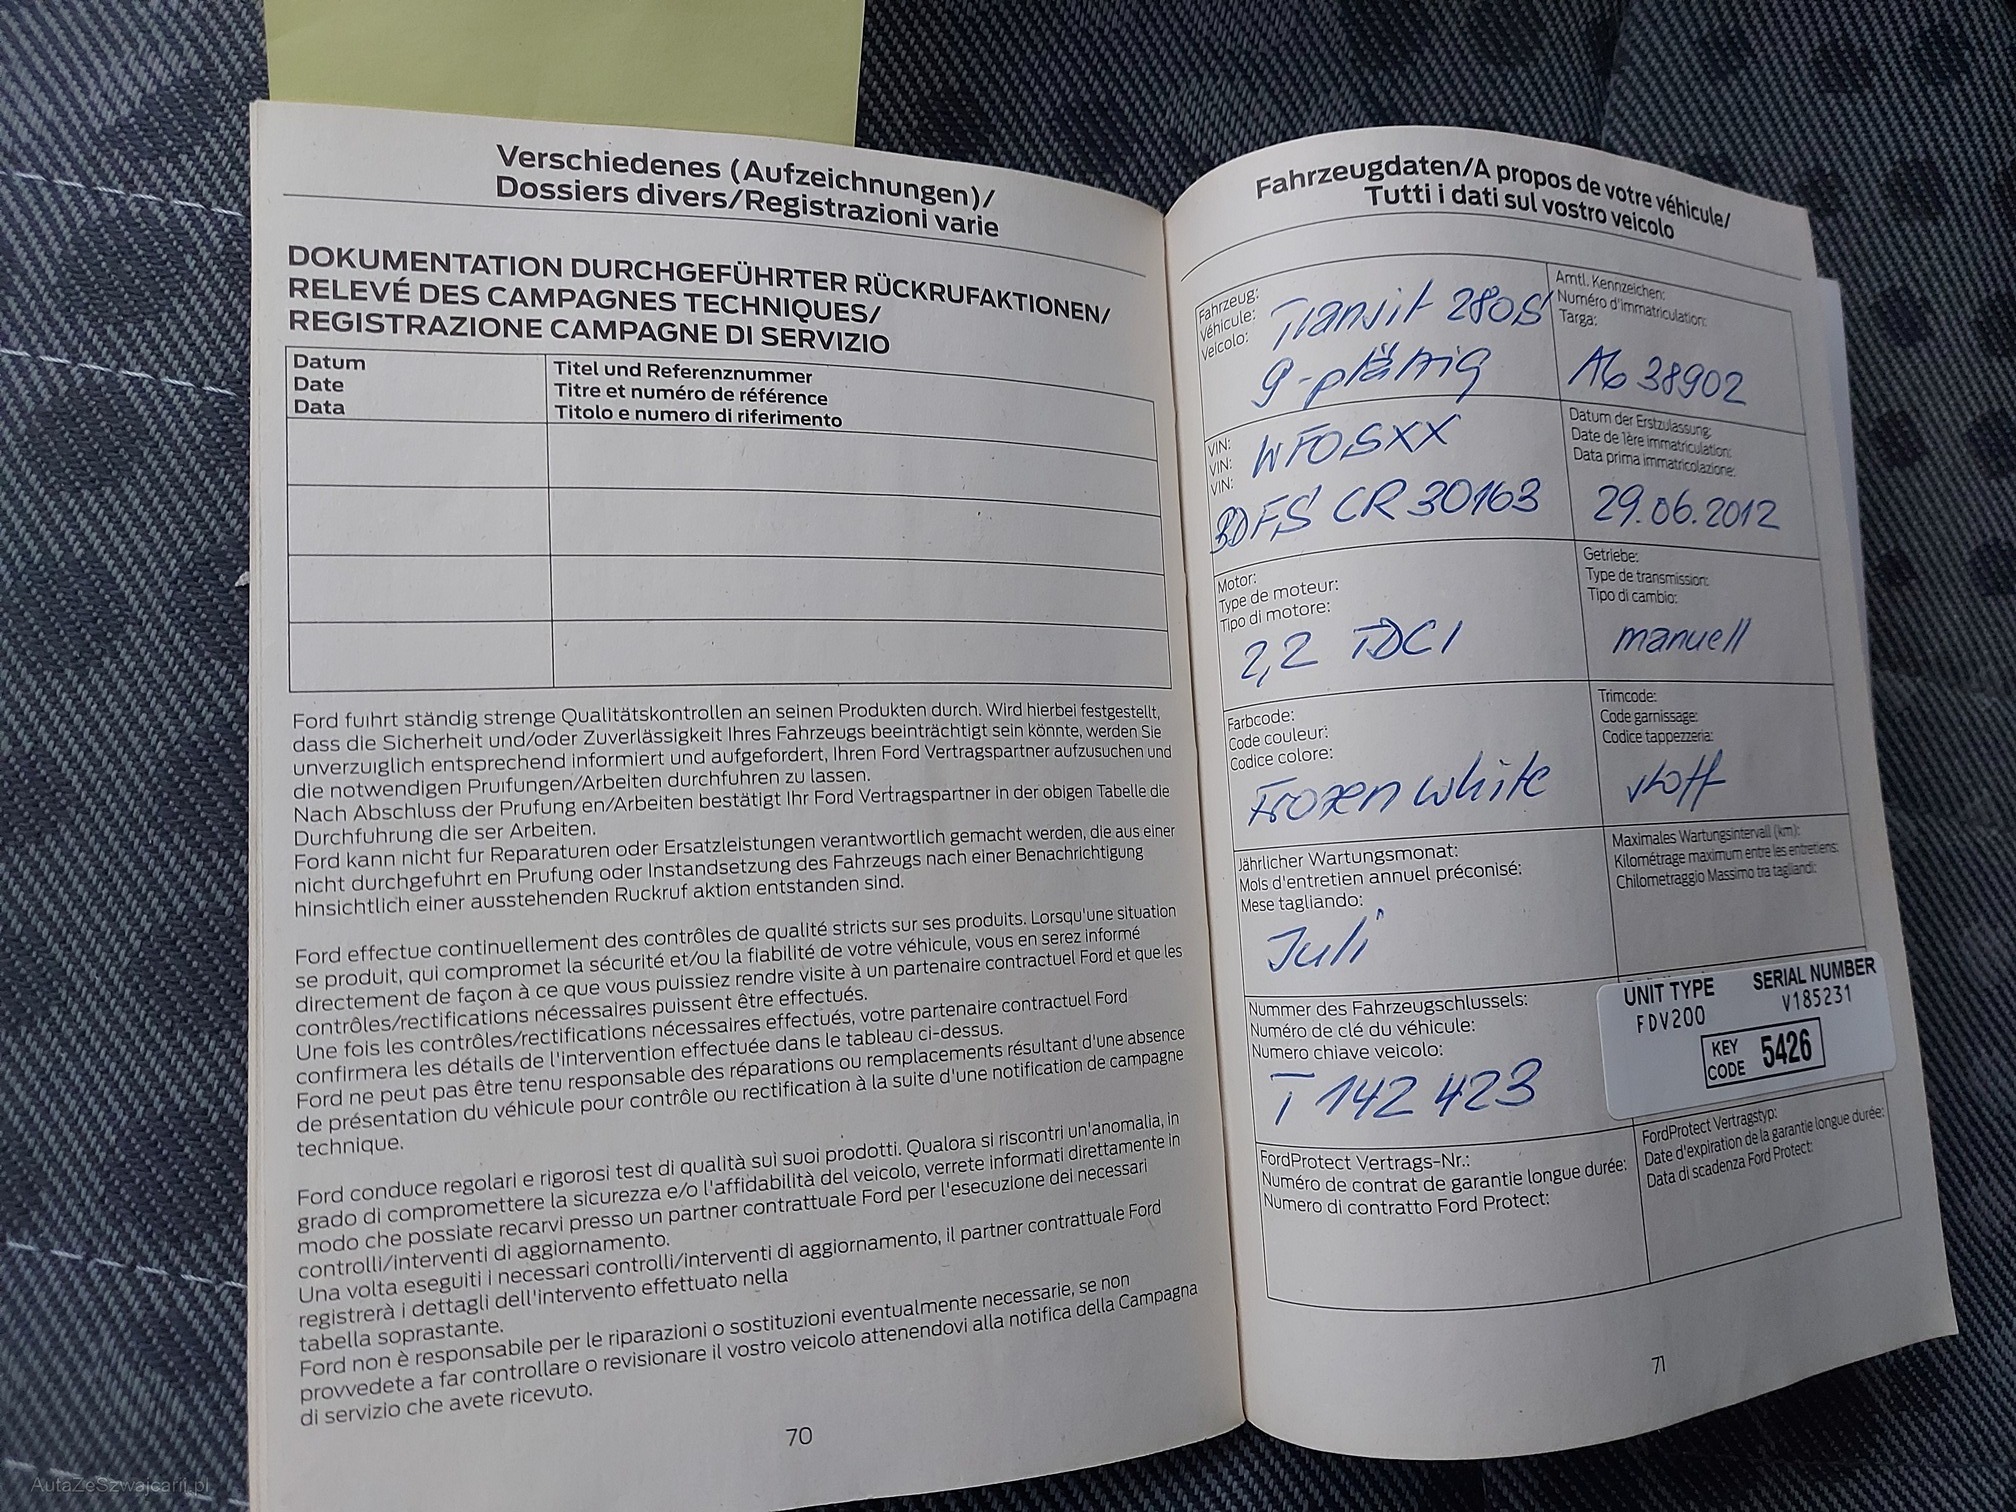 Verschiedenes (Aufzeichnungen)/
Dossiers divers/Registrazioni varie
DOKUMENTATION DURCHGEFÜHRTER RÜCKRUFAKTIONEN/
RELEVÉ DES CAMPAGNES TECHNIQUES/
REGISTRAZIONE CAMPAGNE DI SERVIZIO
Datum
Date
Data
Titel und Referenznummer
Titre et numéro de référence
Titolo e numero di riferimento
Ford fuıhrt ständig strenge Qualitätskontrollen an seinen Produkten durch. Wird hierbei festgestellt,
dass die Sicherheit und/oder Zuverlässigkeit Ihres Fahrzeugs beeinträchtigt sein könnte, werden Sie
unverzuıglich entsprechend informiert und aufgefordert, Ihren Ford Vertragspartner aufzusuchen und
die notwendigen Pruıfungen/Arbeiten durchfuhren zu lassen.
Nach Abschluss der Prufung en/Arbeiten bestätigt Ihr Ford Vertragspartner in der obigen Tabelle die
Durchfuhrung die ser Arbeiten.
Ford kann nicht fur Reparaturen oder Ersatzleistungen verantwortlich gemacht werden, die aus einer
nicht durchgefuhrt en Prufung oder Instandsetzung des Fahrzeugs nach einer Benachrichtigung
hinsichtlich einer ausstehenden Ruckruf aktion entstanden sind.
Ford effectue continuellement des contrôles de qualité stricts sur ses produits. Lorsqu'une situation
se produit, qui compromet la sécurité et/ou la fiabilité de votre véhicule, vous en serez informé
directement de façon à ce que vous puissiez rendre visite à un partenaire contractuel Ford et que les
contrôles/rectifications nécessaires puissent être effectués.
Une fois les contrôles/rectifications nécessaires effectués, votre partenaire contractuel Ford
confirmera les détails de l'intervention effectuée dans le tableau ci-dessus.
Ford ne peut pas être tenu responsable des réparations ou remplacements résultant d'une absence
de présentation du véhicule pour contrôle ou rectification à la suite d'une notification de campagne
technique.
Ford conduce regolari e rigorosi test di qualità sui suoi prodotti. Qualora si riscontri un'anomalia, in
grado di compromettere la sicurezza e/o l'affidabilità del veicolo, verrete informati direttamente in
modo che possiate recarvi presso un partner contrattuale Ford per l'esecuzione dei necessari
controlli/interventi di aggiornamento.
Una volta eseguiti i necessari controlli/interventi di aggiornamento, il partner contrattuale Ford
registrerà i dettagli dell'intervento effettuato nella
tabella soprastante.
Ford non è responsabile per le riparazioni o sostituzioni eventualmente necessarie, se non
provvedete a far controllare o revisionare il vostro veicolo attenendovi alla notifica della Campagna
di servizio che avete ricevuto.
70
Fahrzeugdaten/A propos de votre véhicule/
Tutti i dati sul vostro veicolo
Fahrzeug:
Véhicule:
Veicolo:
Transit 280S
9-plätzig
Amtl. Kennzeichen:
Numéro d'immatriculation:
Targa:
AG 38902
VIN:
VIN:
VIN:
WFOSXX
BDFS CR 30163
Datum der Erstzulassung:
Date de 1ère immatriculation:
Data prima immatricolazione:
29.06.2012
Motor:
Type de moteur:
Tipo di motore:
2,2 TDCI
Getriebe:
Type de transmission:
Tipo di cambio:
manuell
Farbcode:
Code couleur:
Codice colore:
Frozen white
Trimcode:
Code garnissage:
Codice tappezzeria:
stoff
Jährlicher Wartungsmonat:
Mois d'entretien annuel préconisé:
Mese tagliando:
Juli
Maximales Wartungsintervall (km):
Kilométrage maximum entre les entretiens:
Chilometraggio Massimo tra tagliandi:
Nummer des Fahrzeugschlussels:
Numéro de clé du véhicule:
Numero chiave veicolo:
T 142 423
UNIT TYPE SERIAL NUMBER
FDV200 V185231
KEY
CODE 5426
FordProtect Vertrags-Nr.:
Numéro de contrat de garantie longue durée:
Numero di contratto Ford Protect:
FordProtect Vertragstyp:
Date d'expiration de la garantie longue durée:
Data di scadenza Ford Protect:
71
AutaZeSzwajcarii.pl